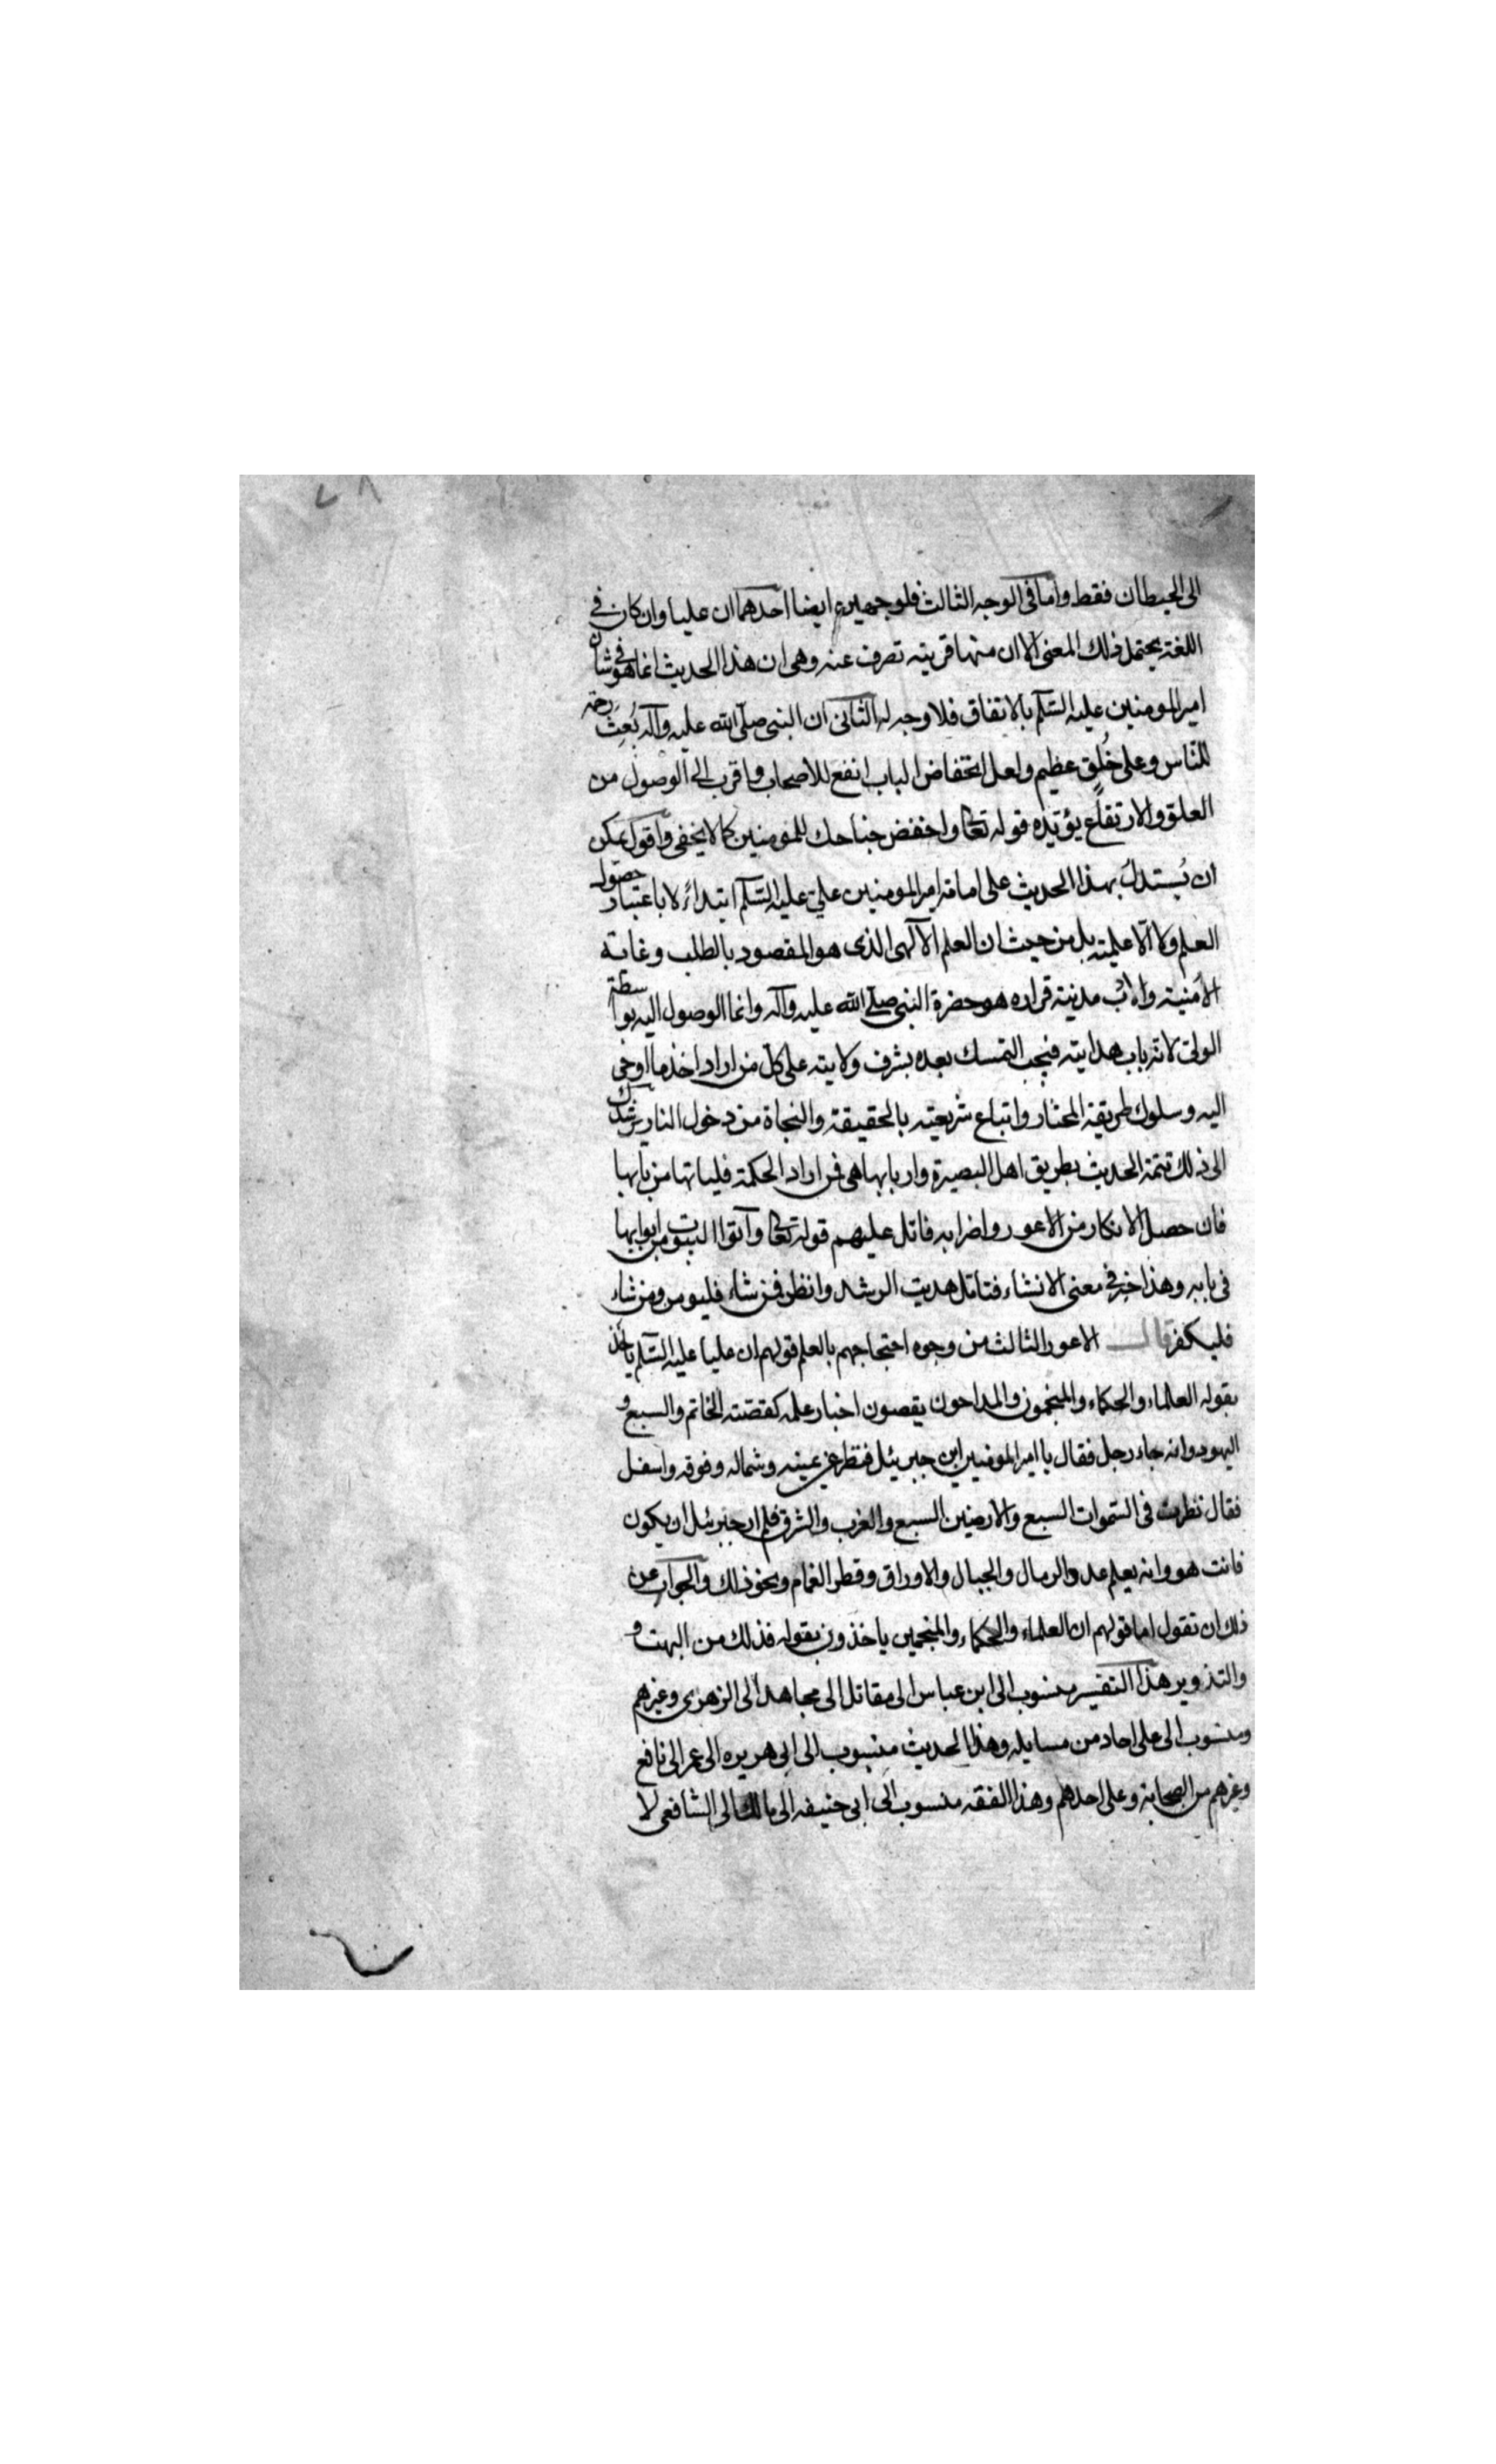 ٧٨
الى الحيطان فقط واما فى الوجه الثالث فلوجهين ايضا احدهما ان عليا وان كان فى
اللغة يحتمل ذلك المعنى الا ان منها قرينة تصرف عنه وهى ان هذا الحديث انما هو فى شان
امير المومنين عليه السلم بالاتفاق فلا وجه له الثانى ان النبى صلى الله عليه وآله بُعِث رحمة
للناس وعلى خُلق عظيم ولعل انخفاض الباب انفع للاصحاب واقرب الى الوصول من
العلو والارتفاع يؤيده قوله تعا واخفض جناحك للمومنين كما لا يخفى واقول يمكن
ان يُستدل بهذا الحديث على امامة امير المومنين على عليه السلم ابتداءً لا باعتبار حصول
العلم ولا الاعلمية بل من حيث ان العلم الالهى الذى هو المقصود بالطلب وغاية
الامنية والادب مدينة قراره هو حضرة النبى صلى الله عليه وآله وانما الوصول اليه بواسطة
الولى لانه باب هدايته فيجب التمسك بعده بشرف ولايته على كل من اراد اخذ ما اوحى
اليه وسلوك طريقة المختار واتباع شريعته بالحقيقة والنجاة من دخول النار يرشدك
الى ذلك تتمة الحديث بطريق اهل البصيرة واربابها هى فمن اراد الحكمة فلياتها من بابها
فان حصل الانكار من الاعور واضرابه فاتل عليهم قوله تعا وآتوا البيوت من ابوابها
فى بابه وهذا خبر فى معنى الانشاء فتامل هديت الرشد وانظر فمن شاء فليومن ومن شاء
فليكفر قال الاعور الثالث من وجوه احتجاجهم بالعلم قولهم ان عليا عليه السلم ياخذ
بقوله العلماء والحكماء والمنجمون والمداحون يقصون اخبار علمه كقصة الخاتم والسبع و
اليهود وانه جاء رجل فقال يا امير المومنين اين جبرئيل فنظر عن يمينه وشماله وفوقه واسفل
فقال نظرت فى السموات السبع والارضين السبع والغرب والشرق فلم ار جبرئيل ان يكون
فانت هو وانه يعلم عدد الرمال والجبال والاوراق وقطر الغمام ونحو ذلك والجواب عن
ذلك ان تقول اما قولهم ان العلماء والحكماء والمنجمين ياخذون بقوله فذلك من البهت و
والتزوير هذا التفسير منسوب الى ابن عباس الى مقاتل الى مجاهد الى الزهرى وغيرهم
ومنسوب الى على احاد من مسايله وهذا الحديث منسوب الى ابى هريره الى عمر الى نافع
وغيرهم من الصحابة وعلى احدهم وهذا الفقه منسوب الى ابى حنيفه الى مالك الى الشافعى لا